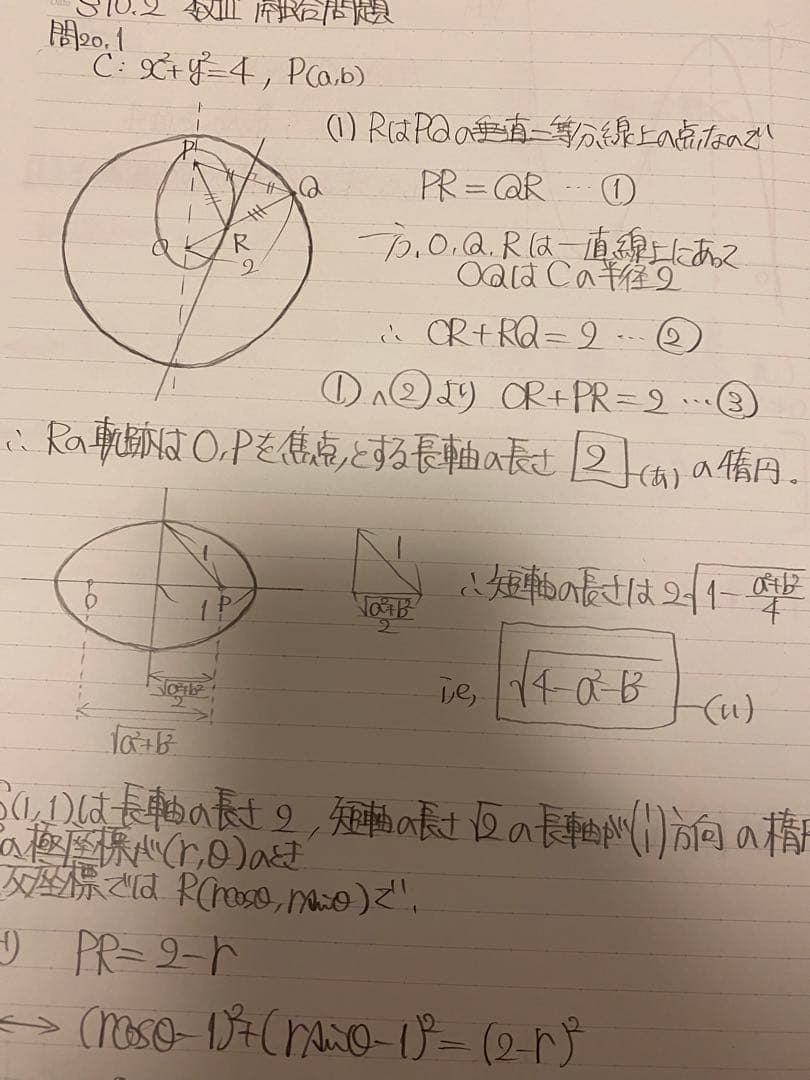 §10.2 数III 融合問題
問20.1
C: x²+y²=4, P(a,b)
(1) RはPQの垂直二等分線上の点なので
PR=QR … ①
一方, O, Q, Rは一直線上にあって
OQはCの半径2
∴ OR+RQ=2 … ②
①∧②より OR+PR=2 … ③
∴ Rの軌跡はO,Pを焦点とする長軸の長さ 2 (あ) の楕円。
P
Q
O
R
2
1
O
1
P
√(a²+b²)/2
√(a²+b²)
1
√(a²+b²)/2
∴短軸の長さは 2√(1-(a²+b²)/4)
i.e, √(4-a²-b²) (い)
(1,1)は長軸の長さ2, 短軸の長さ√2の長軸が(1 1)方向の楕円
の極座標が(r,θ)のとき
交座標では R(rcosθ, rsinθ)で,
PR=2-r
⟷ (rcosθ-1)²+(rsinθ-1)²=(2-r)²